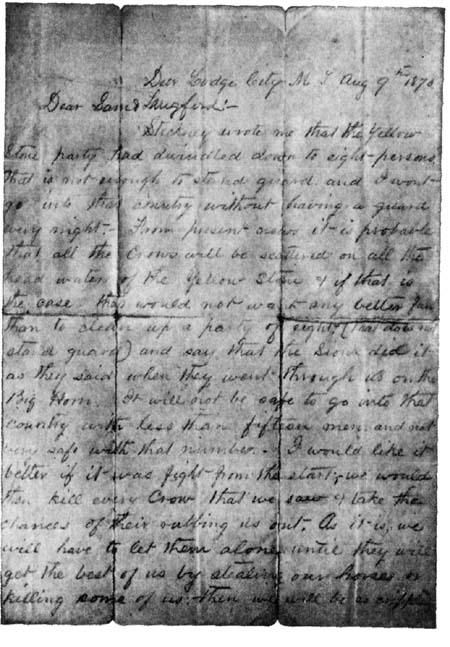 Deer Lodge City M T Aug 9th 1870
Dear Sam & Langford:-
Stickney wrote me that the Yellow
Stone party had dwindled down to eight persons
that is not enough to stand guard and I wont
go into that country without having a guard
every night.- From present news it is probable
that all the Crows will be scattered on all the
head water of the Yellow Stone & if that is
the case they would not want any better fun
than to clean up a party of eight (that does not
stand guard) and say that the Sioux did it
as they said when they went through us on the
Big Horn. It will not be safe to go into that
country with less than fifteen men and not
very safe with that number.- I would like it
better if it was fight from the start; we would
then kill every Crow that we saw & take the
chances of their rubbing us out. As it is, we
will have to let them alone until they will
get the best of us by stealing our horses or
killing some of us: then we will be so